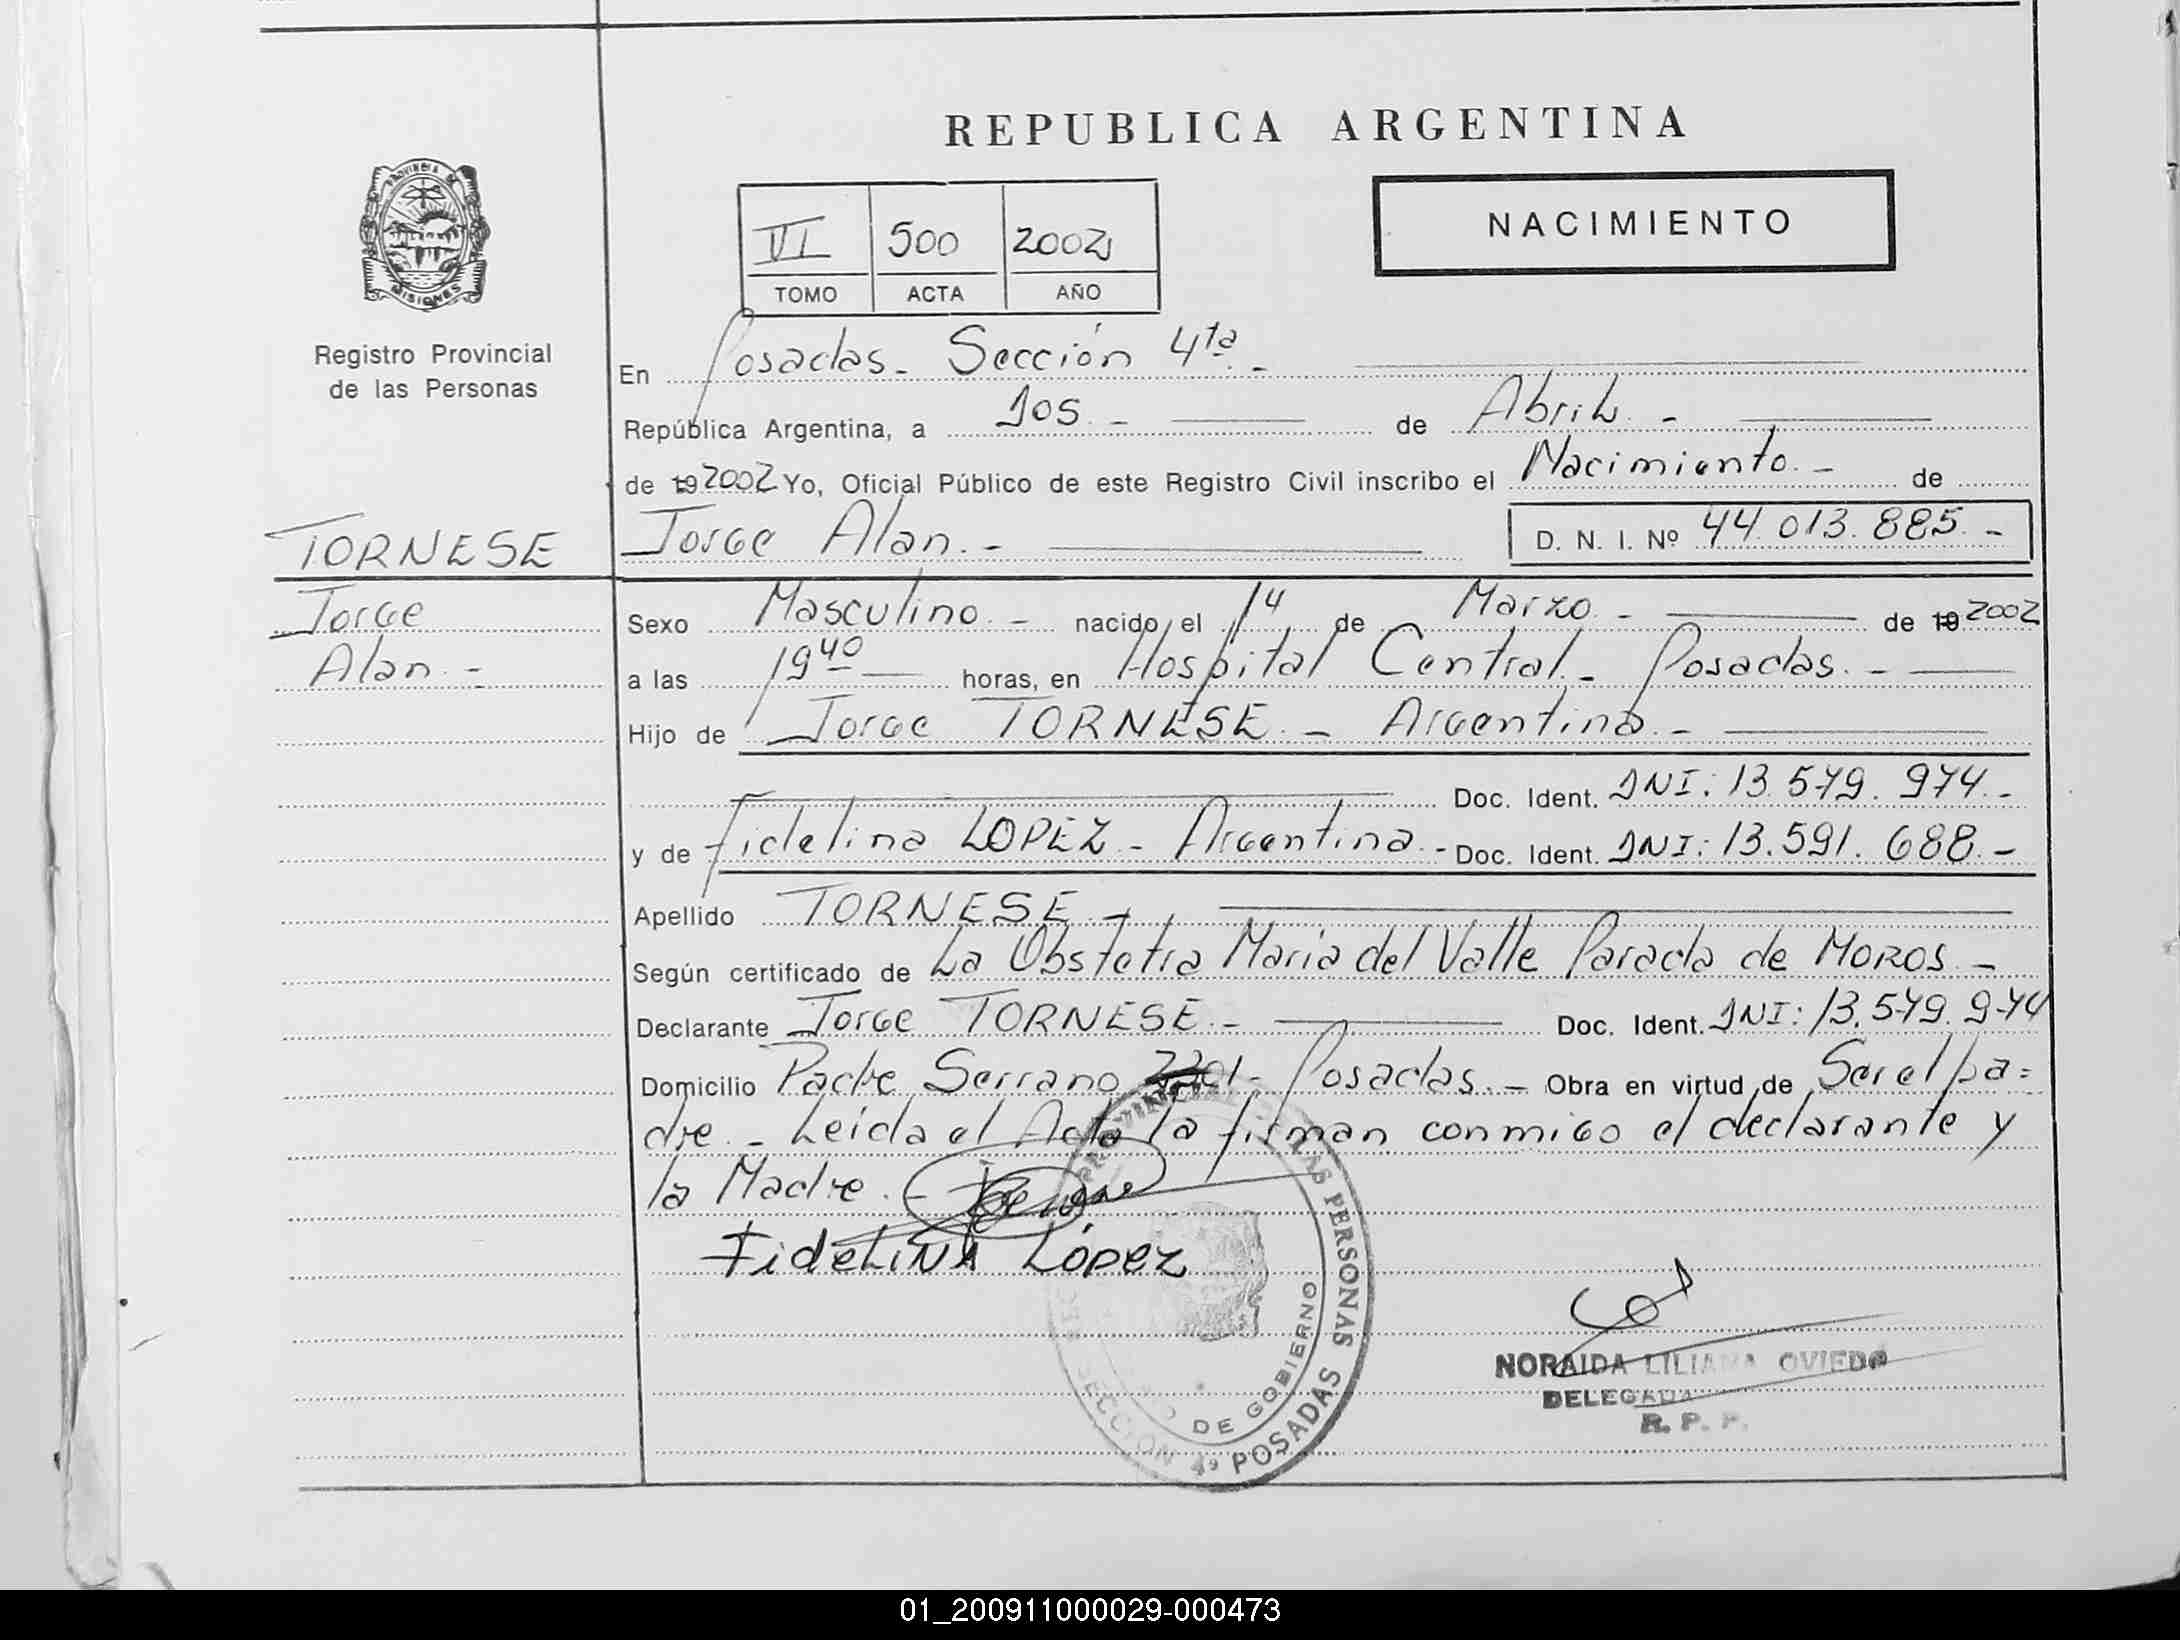 REPUBLICA ARGENTINA
PROVINCIA DE
MISIONES
VI 500 2002
TOMO ACTA AÑO
NACIMIENTO
Registro Provincial
de las Personas
En Posadas - Sección 4ta. -
República Argentina, a 05. - de Abril. -
de 19 2002 Yo, Oficial Público de este Registro Civil inscribo el Nacimiento. - de
TORNESE
Jorge Alan. - D. N. I. Nº 44.013.885. -
Jorge
Alan. -
Sexo Masculino. - nacido el 14 de Marzo. - de 19 2002
a las 19 40 horas, en Hospital Central. - Posadas. -
Hijo de Jorge TORNESE. - Argentina. -
Doc. Ident. DNI: 13.579.974. -
y de Fidelina LOPEZ - Argentina. - Doc. Ident. DNI: 13.591.688. -
Apellido TORNESE. -
Según certificado de La Obstetra Maria del Valle Parada de MOROS. -
Declarante Jorge TORNESE. - Doc. Ident. DNI: 13.579.974
Domicilio Padre Serrano - Posadas. - Obra en virtud de Ser el pa=
dre. - Leída el Acta la firman conmigo el declarante y
la Madre. -
FideLiNA López
PROVINCIAL DE LAS PERSONAS
DE GOBIERNO
SECCION 4ª POSADAS
NORAIDA LILIANA OVIEDO
DELEGADA
R. P. P.
01_200911000029-000473